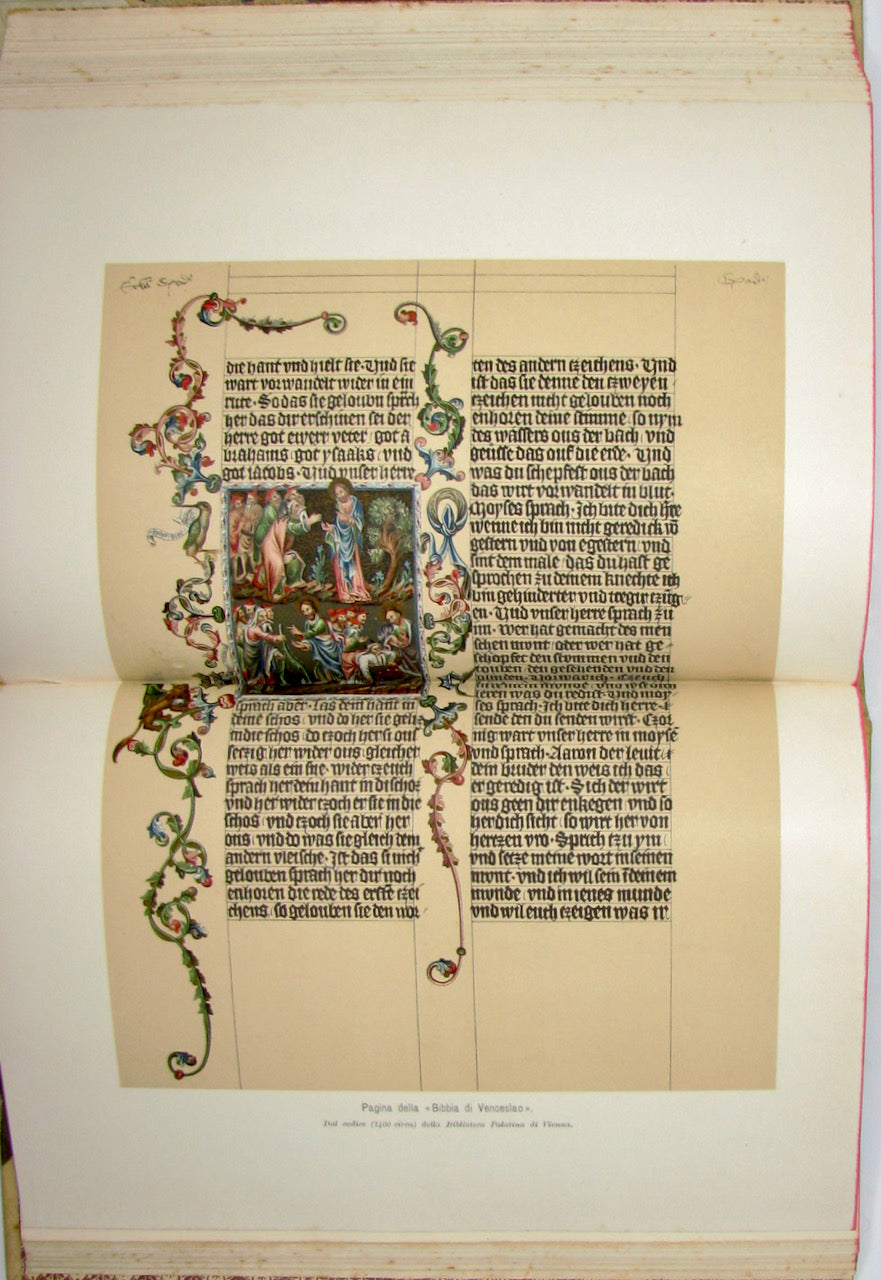 die hant vnd hielt sie · Vnd sie
wart vorwandelt wider in ein
rute · So das sie geloubn sprach
her das dir erschinen sei der
herre got ewerr veter got a
brahams got ysaaks vnd
got iacobs · Vnd vnser herre
sprach aber · las dein hant in
deine schos vnd do her sie
in die schos do czoch hersi ous
seczig her wider ous gleicher
weis als ein sne · wider czeuch
sprach her dein hant in di schoz
vnd her wider czoch er sie in die
schos vnd czoch sie aber her
ous vnd do was sie gleich dem
andern vleische · Ist das si nich
gelouben sprach her dir noch
enhoren die rede des erste czei
chens so gelouben sie den wor
ten des andern czeichens · Vnd
ist das sie denne den czweyen
czeichen nicht gelouben noch
enhoren deine stimme so nym
des wassers ous der bach vnd
geusse das ouf die erde · Vnd
was du schepfest ous der bach
das wirt vorwandelt in blut ·
Moyses sprach · Ich bite dich
wenne ich bin nicht geredick
gestern vnd von egestern vnd
sint dem male das du hast ge
sprochen zu deinem knechte ich
bin gehinderter vnd tregir
en · Vnd vnser herre sprach zu
im · wer hat gemacht des men
schen mont oder wer hat ge
schopfet den stommen vnd den
touben den gesehenden vnd den
leren was du redist · Vnd moy
ses sprach · Ich bite dich herre
sende den du senden wirst · Czor
nig wart vnser herre in moyse
vnd sprach · Aaron der leuit
dein bruder den weis ich das
er geredig ist · Sich der wirt
ous geen dir enkegen vnd so
her dich sicht so wirt her von
herczen vro · Sprich czu ym
vnd secze meine wort in seinen
mont · vnd ich wil sein in deinem
munde vnd in ienes munde
vnd wil euch czeigen was ir
Pagina della «Bibbia di Venceslao».
Dal codice (1400 circa) della Biblioteca Palatina di Vienna.